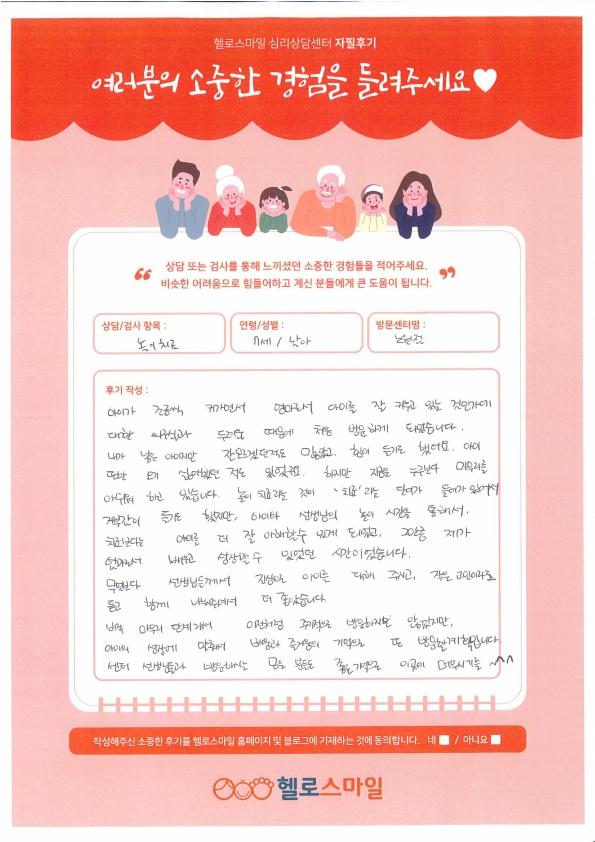 헬로스마일 심리상담센터 자필후기
여러분의 소중한 경험을 들려주세요
상담 또는 검사를 통해 느끼셨던 소중한 경험들을 적어주세요.
비슷한 어려움으로 힘들어하고 계신 분들에게 큰 도움이 됩니다.
상담/검사 항목 :
놀이치료
연령/성별 :
7세 / 남아
방문센터명 :
노원점
후기 작성 :
아이가 조금씩 커가면서 엄마로서 아이를 잘 키우고 있는 것인가에
대한 의구심과 두려움 때문에 처음 방문하게 되었습니다.
내가 낳은 아이지만 잘 모르겠던 적도 많았고, 힘이 들기도 했어요. 아이
또한 오기 싫어했던 적도 있었구요. 하지만 지금은 누구보다 마무리를
아쉬워 하고 있습니다. 놀이치료라는 것이 '치료'라는 단어가 들어가 있어서
거부감이 들기도 했지만, 아이와 선생님의 놀이 시간을 통해서,
치료보다는 아이를 더 잘 이해할 수 있게 되었고, 그만큼 제가
엄마로서 배우고 성장할 수 있었던 시간이었습니다.
무엇보다 선생님들께서 진심으로 아이를 대해 주시고, 작은 고민이라도
듣고 함께 나눠주셔서 더 좋았습니다.
비록 마무리 단계라서 이전처럼 주기적으로 방문하지는 않겠지만,
아이의 성장에 맞춰서 배움과 즐거움의 기억으로 또 방문할 계획입니다.
센터 선생님들과 방문하시는 모든 분들도 좋은 기억으로 이곳이 되시기를 ~^^
작성해주신 소중한 후기를 헬로스마일 홈페이지 및 블로그에 기재하는 것에 동의합니다. 네 / 아니요
헬로스마일